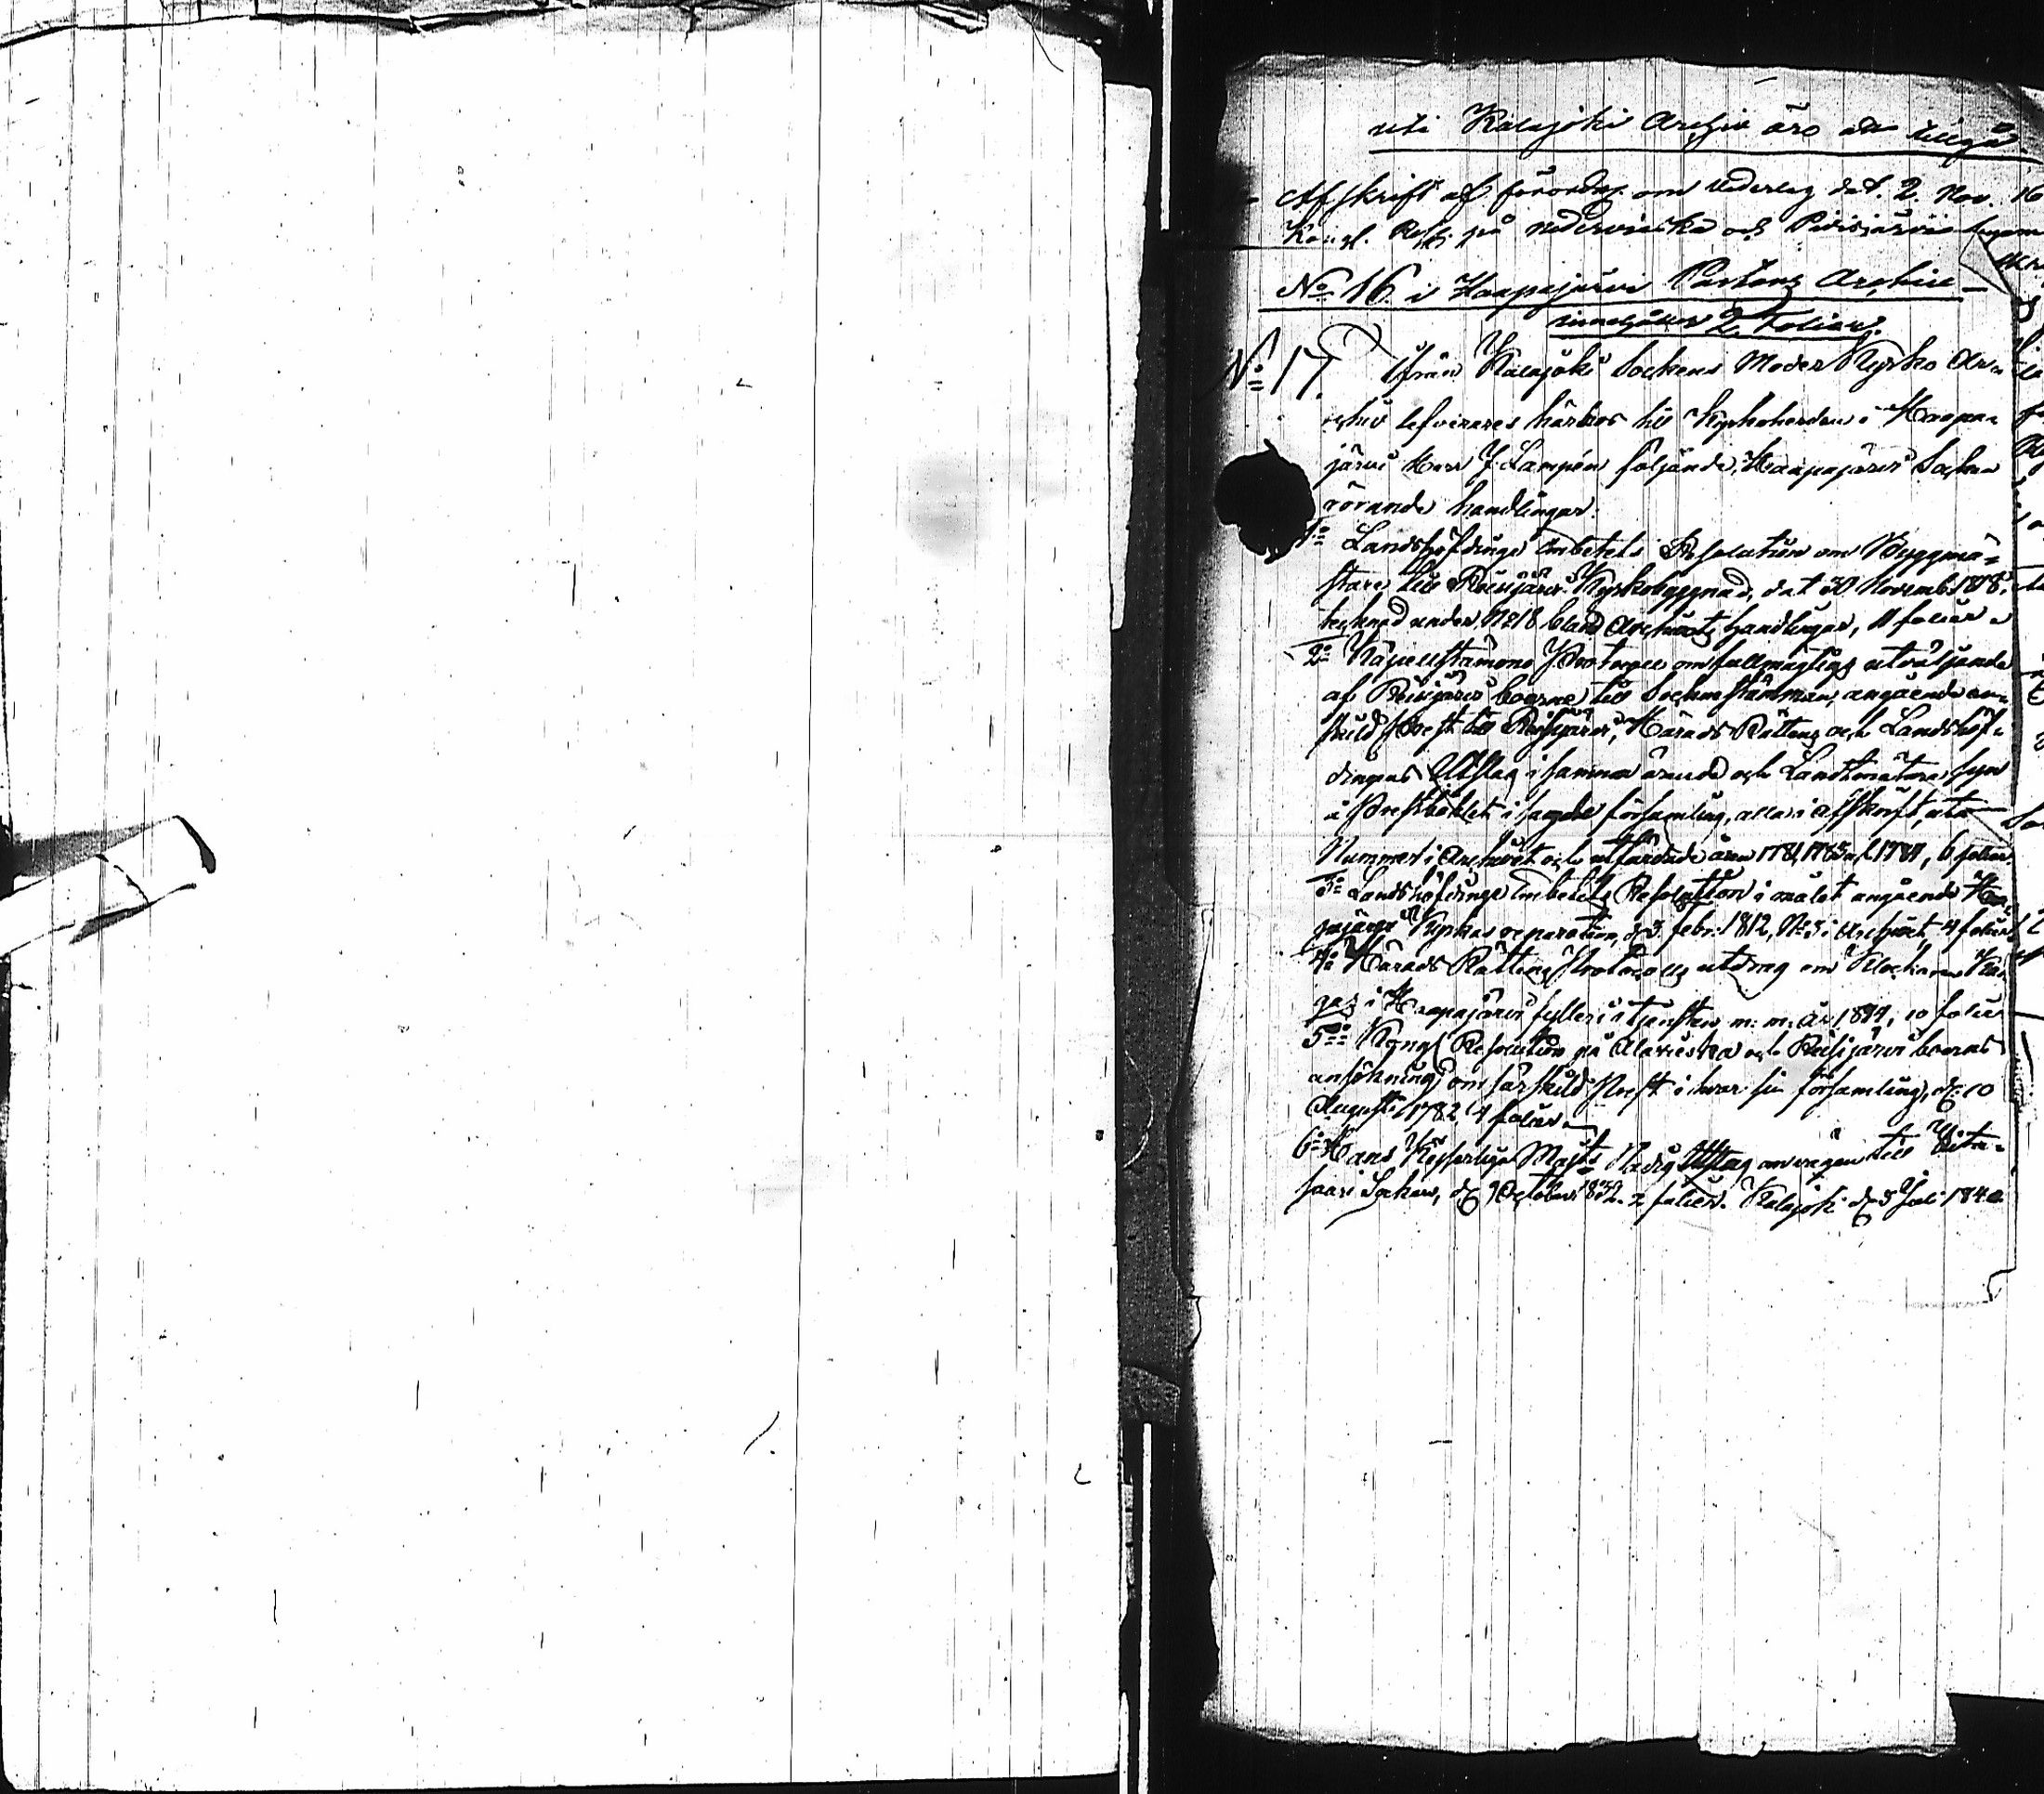 uti Kalajoki Archiv äro att tillgå
Afskrift af förordn. om Vederlag dat. 2. Nov. 16
Kongl. Resol. på Nedervieska och Pidisjärvi
No 16 i Haapajärvi Pastors Archive
innehåller 2 Folier.
No 17. Ifrån Kalajoki Sockens Moder Kyrko Ar-
chiv lefvereres härhos till Kyrkoherden i Haapa-
järvi Herr J. Lampén följande, Haapajärvi Socken
rörande handlingar:
1o Landshöfdinge Embetets Resolution om Byggmä-
stare till Reisjärvi Kyrkobyggnad, dat 30 Novemb. 1818,
tecknad under No 18 bland Archivets handlingar, 11 folier
2o Kapellstämmo Protocoll om fullmägtigs utväljande
af Reisjärvi boerne till Sockenstämman, angående en-
skild Prest till Reisjärvi, Härads Rättens och Landshöf-
dingens Utslag i samma ärende och Landtmätare syn
å Prestbohlet i sagde församling, allas i afskrift, utan
Nummer i Archivet och utfärdade åren 1781, 1785 och 1787, 6 folier
3o Landshöfdinge Embetets Resolution i målet angående Haa-
pajärvi Kyrkas reparation, d. 3 febr. 1812, No 3 i Archivet, 4 folier
4o Härads Rättens Protocolls utdrag om Klockaren
i Haapajärvi fylleri i tjensten m: m: År 10 folier
5o Kongl Resolution på Alavieska och Reisjärvi boernes
ansökning om särskild Prest i hvar sin församling, d. 10
Augusti 1782, 4 folier
6o Hans Kejserliga Majts Nådiga Utslag om vägen till Vita-
saari Socken, d. 9 October 1832. 2 folier. Kalajoki d. 3 Juli 1840